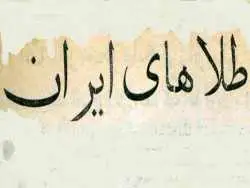 طلاهای ایران